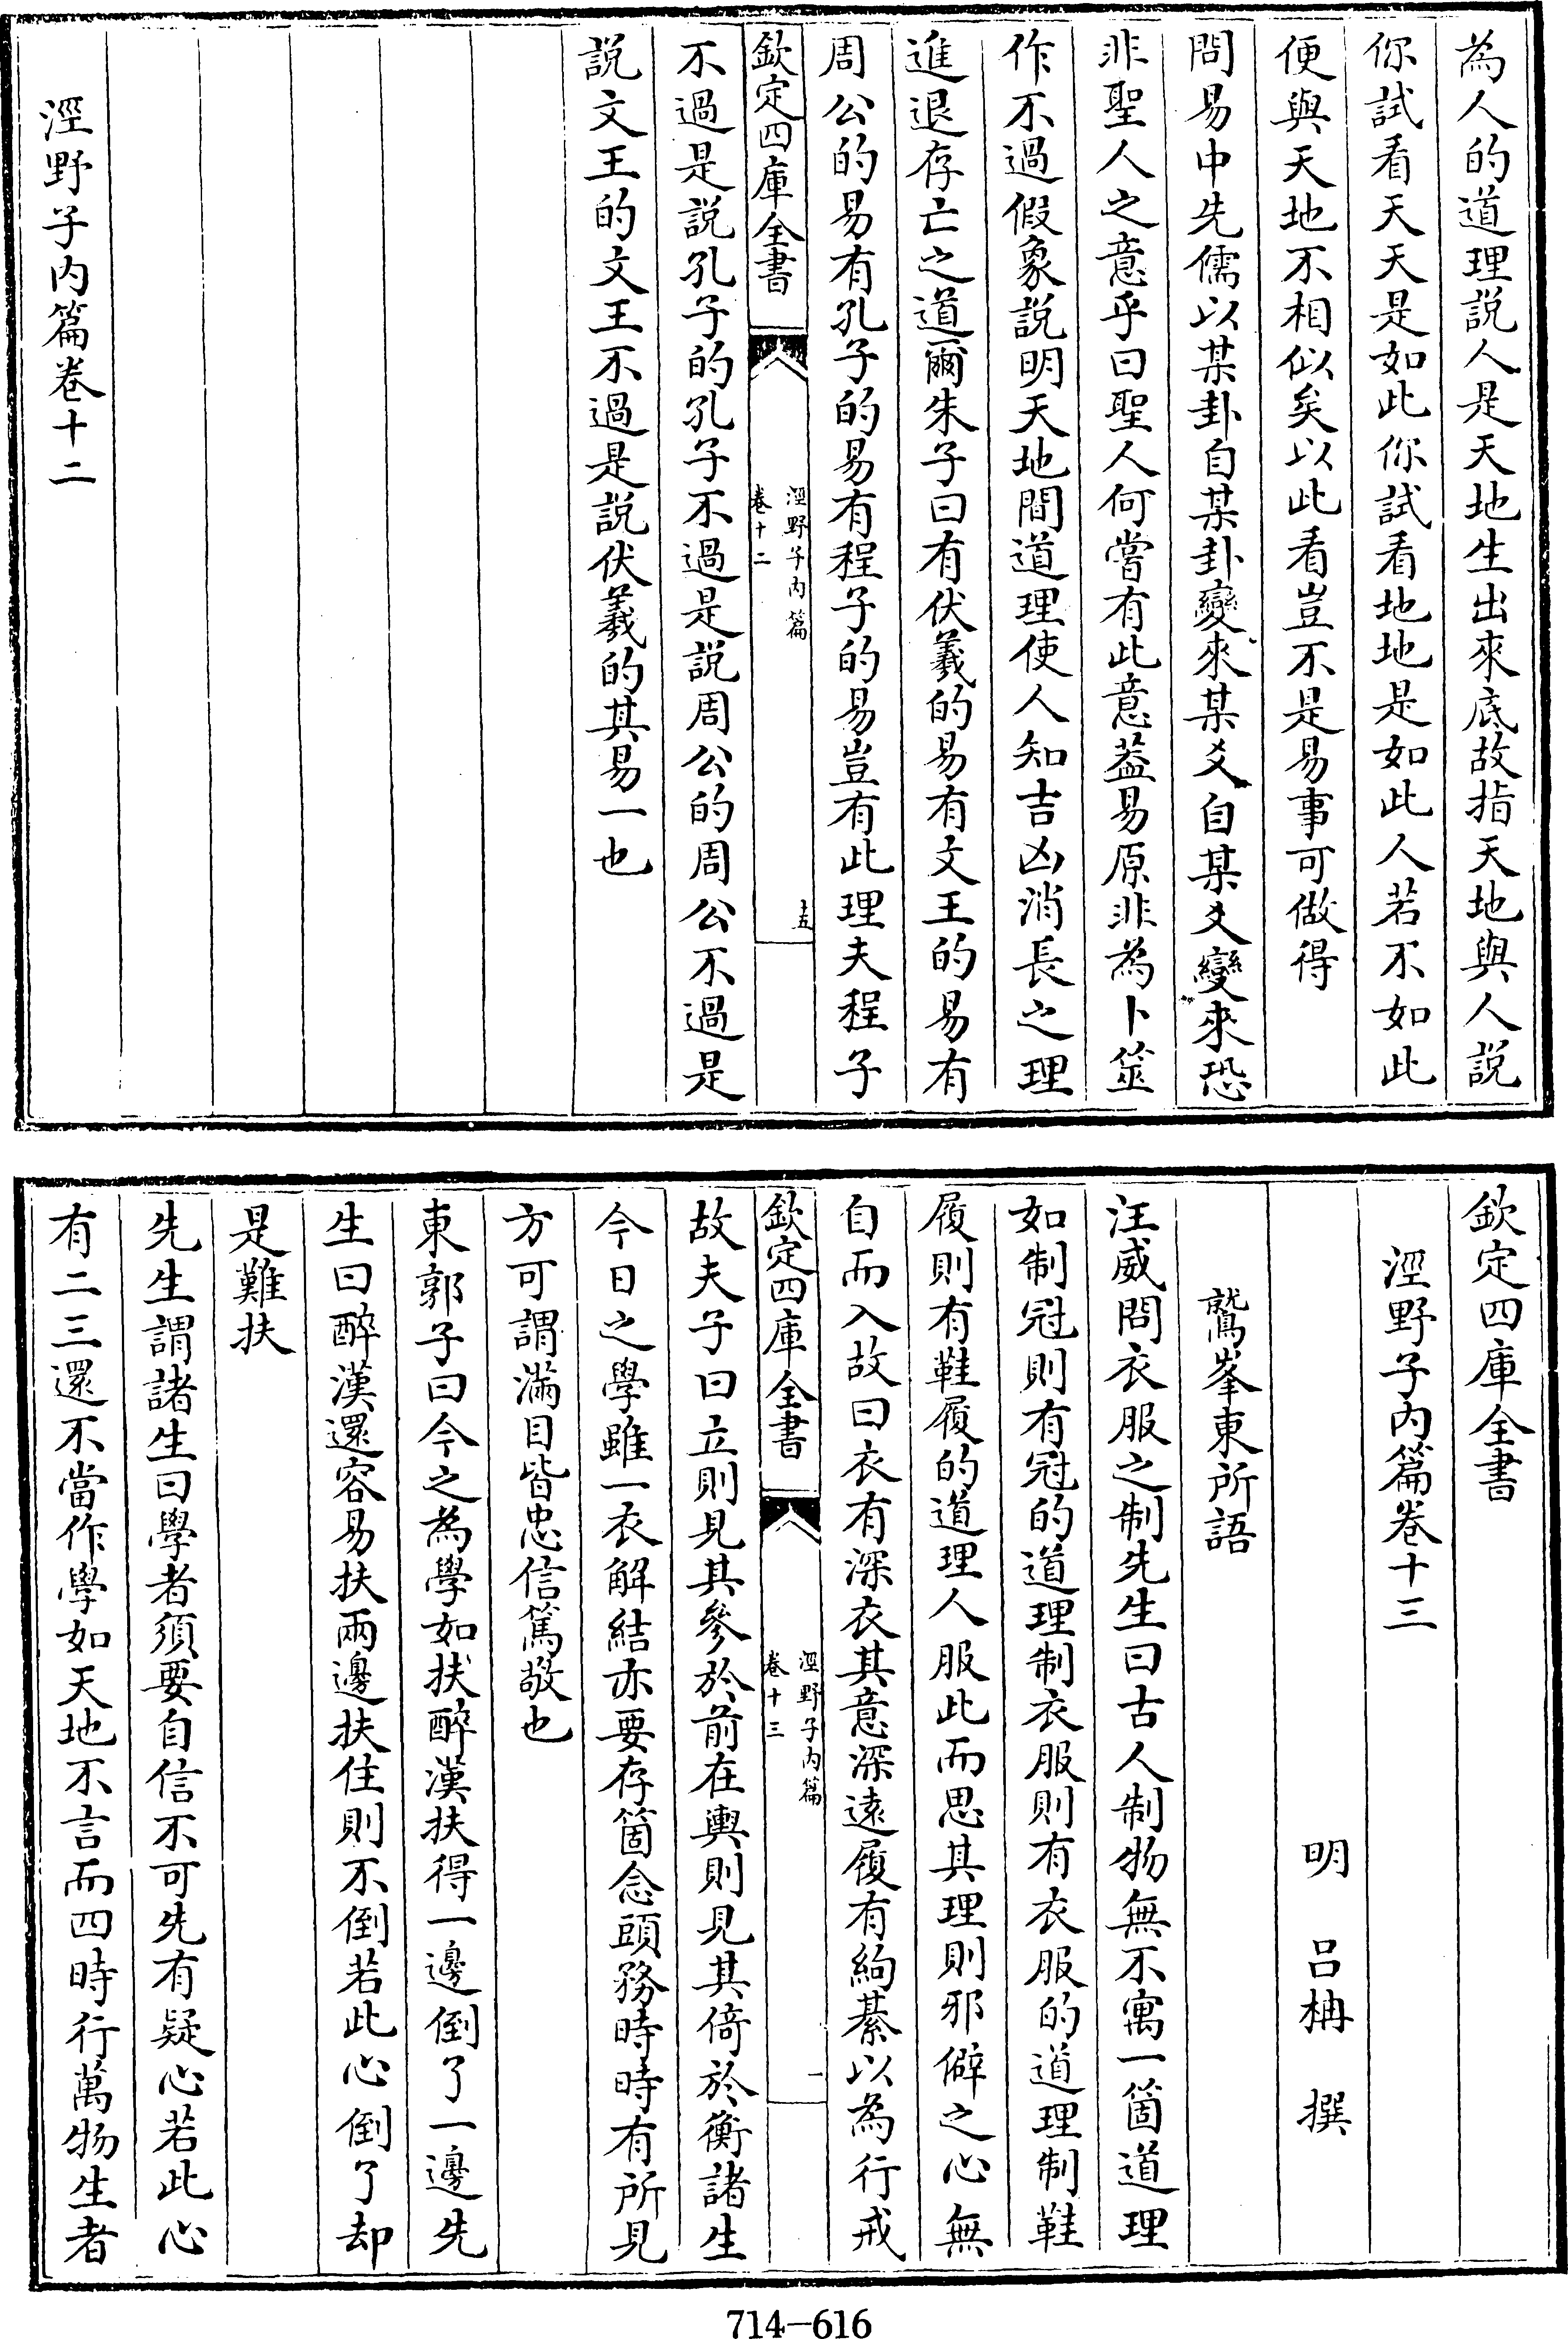 為人的道理說人是天地生出來底故指天地與人說
你試看天天是如此你試看地地是如此人若不如此
便與天地不相似矣以此看豈不是易事可做得
問易中先儒以某卦自某卦變來某爻自某爻變來恐
非聖人之意乎曰聖人何嘗有此意葢易原非為卜筮
作不過假象說明天地間道理使人知吉凶消長之理
進退存亡之道爾朱子曰有伏羲的易有文王的易有
周公的易有孔子的易有程子的易豈有此理夫程子
欽定四庫全書
涇野子內篇
卷十二
十五
不過是說孔子的孔子不過是說周公的周公不過是
說文王的文王不過是說伏羲的其易一也
涇野子內篇卷十二
欽定四庫全書
涇野子內篇卷十三
明 呂柟 撰
鷲峯東所語
汪威問衣服之制先生曰古人制物無不寓一箇道理
如制冠則有冠的道理制衣服則有衣服的道理制鞋
履則有鞋履的道理人服此而思其理則邪僻之心無
自而入故曰衣有深衣其意深遠履有絇綦以為行戒
欽定四庫全書
涇野子內篇
卷十三
一
故夫子曰立則見其參於前在輿則見其倚於衡諸生
今日之學雖一衣解結亦要存箇念頭務時時有所見
方可謂滿目皆忠信篤敬也
東郭子曰今之為學如扶醉漢扶得一邊倒了一邊先
生曰醉漢還容易扶兩邊扶住則不倒若此心倒了却
是難扶
先生謂諸生曰學者須要自信不可先有疑心若此心
有二三還不當作學如天地不言而四時行萬物生者
714-616